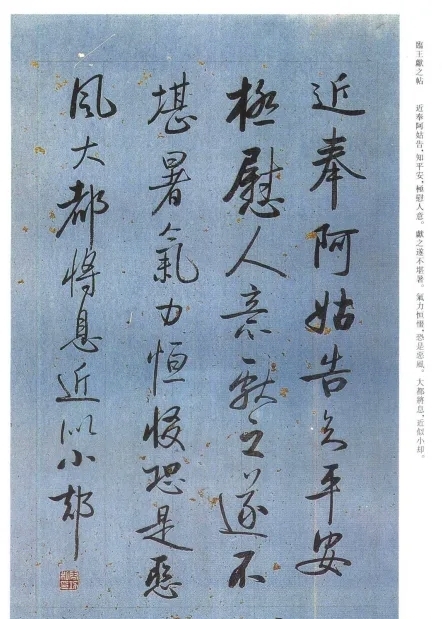 臨王獻之帖　近奉阿姑告，知平安，極慰人意。獻之遂不堪暑。氣力恒惙，恐是惡風。大都將息，近似小却。
近奉阿姑告知平安
極慰人意獻之遂不
堪暑氣力恒惙恐是惡
風大都將息近似小却